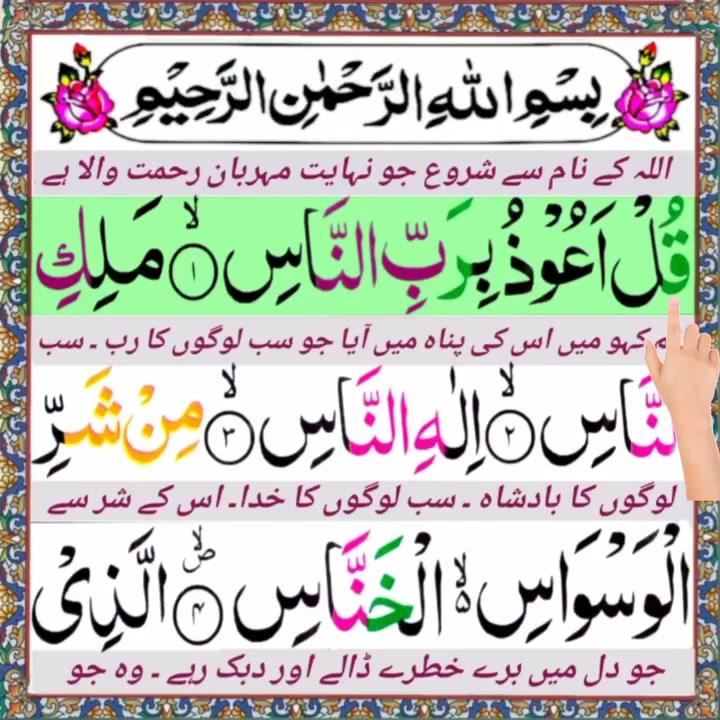 بِسْمِ اللهِ الرَّحْمٰنِ الرَّحِيْمِ
اللہ کے نام سے شروع جو نہایت مہربان رحمت والا ہے
قُلْ اَعُوْذُ بِرَبِّ النَّاسِ ۙ﴿۱﴾ مَلِكِ
کہو میں اس کی پناہ میں آیا جو سب لوگوں کا رب ۔ سب
النَّاسِ ۙ﴿۲﴾ اِلٰهِ النَّاسِ ۙ﴿۳﴾ مِنْ شَرِّ
لوگوں کا بادشاہ ۔ سب لوگوں کا خدا۔ اس کے شر سے
الْوَسْوَاسِ ۙ۵ الْخَنَّاسِ ۙ ص﴿۴﴾ الَّذِیْ
جو دل میں برے خطرے ڈالے اور دبک رہے ۔ وہ جو